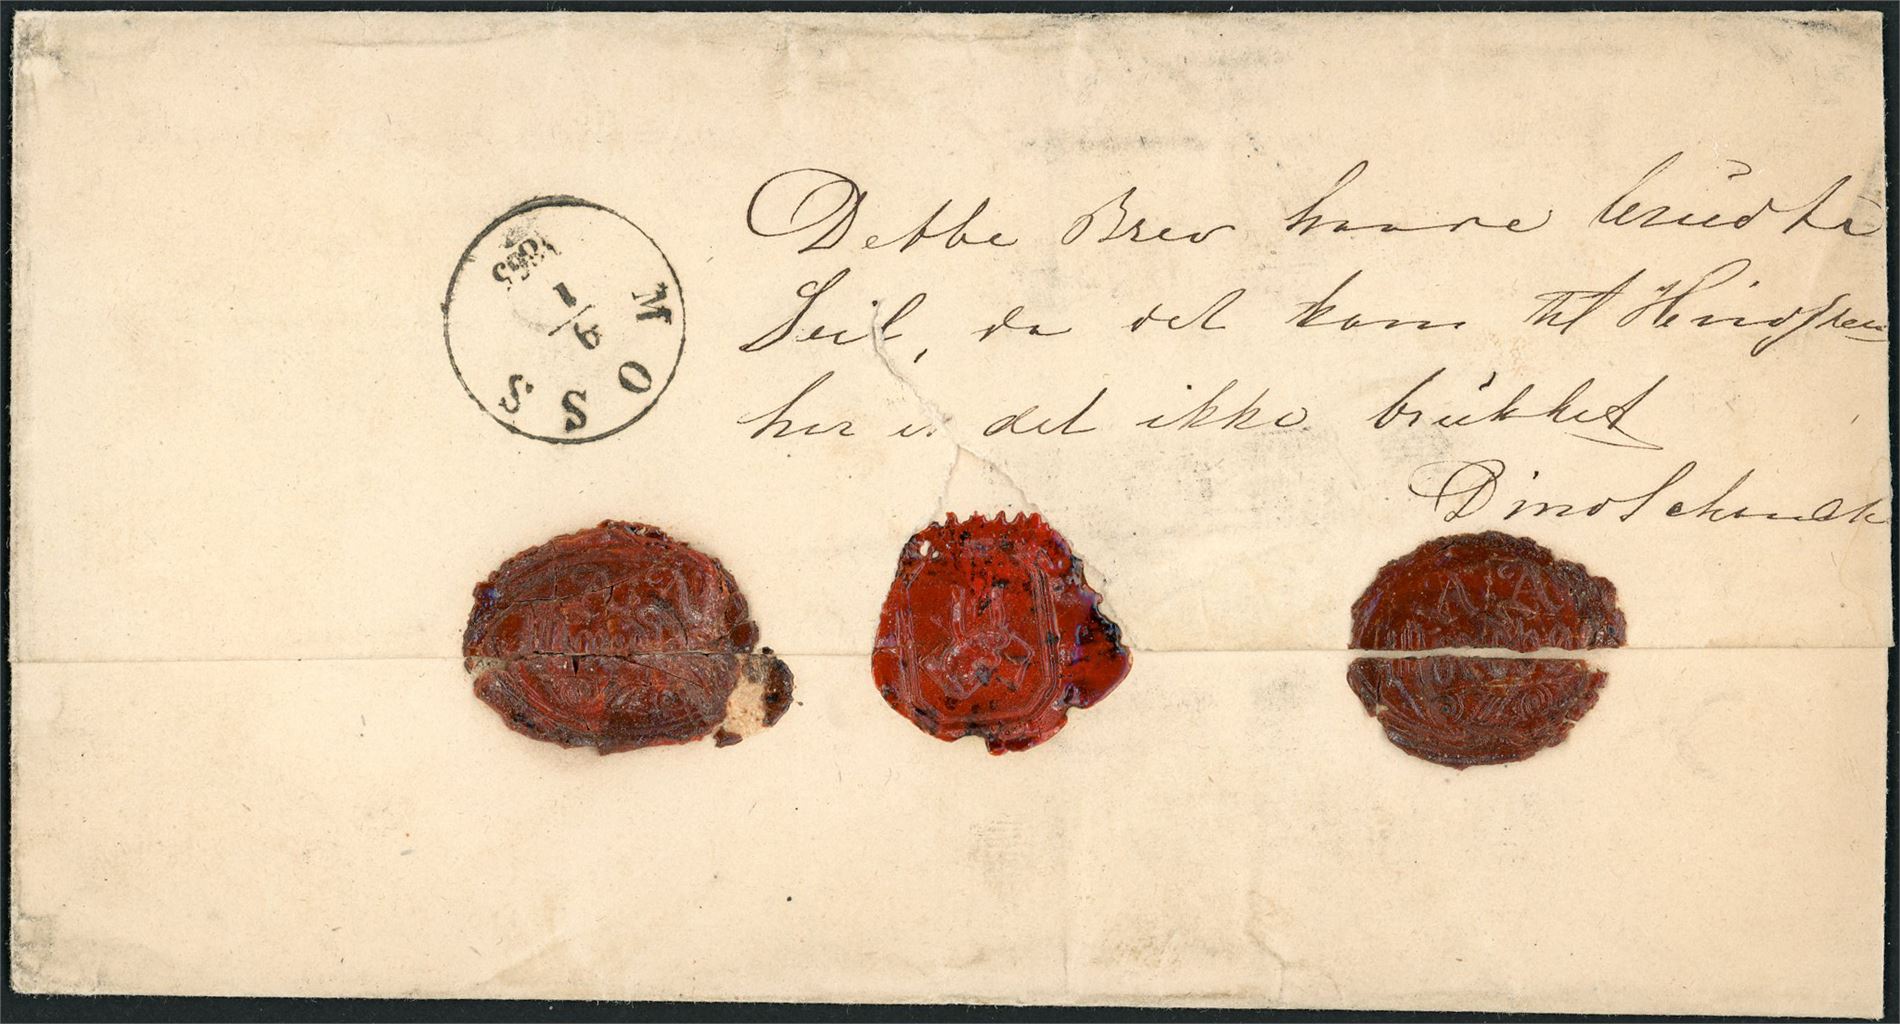 MOSS
1/6
1865
Dette Brev havde brudte
Seil, da det kom til
her er det ikke brükket
A A